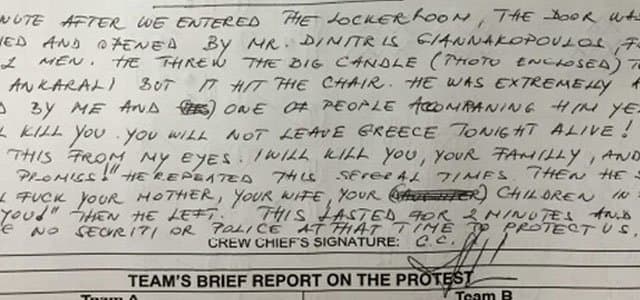 NUTE AFTER WE ENTERED THE LOCKERROOM, THE DOOR WA
ED AND OPENED BY MR. DIMITRIS GIANNAKOPOULOS, F
2 MEN. HE THREW THE BIG CANDLE (PHOTO ENCLOSED) T
ANKARALI BUT IT HIT THE CHAIR. HE WAS EXTREMELY A
D BY ME AND ONE OF PEOPLE ACOMPANING HIM YE
L KILL YOU. YOU WILL NOT LEAVE GREECE TONIGHT ALIVE!
THIS FROM MY EYES. I WILL KILL YOU, YOUR FAMILLY, AND
PROMISS!" HE REPEATED THIS SEFERAL TIMES. THEN HE S
L FUCK YOUR MOTHER, YOUR WIFE, YOUR CHILDREN IN
YOU!" THEN HE LEFT. THIS LASTED FOR 2 MINUTES AND
E NO SECURITI OR POLICE AT THAT TIME TO PROTECT US.
CREW CHIEF'S SIGNATURE: C.C.
TEAM'S BRIEF REPORT ON THE PROTEST
Team A Team B